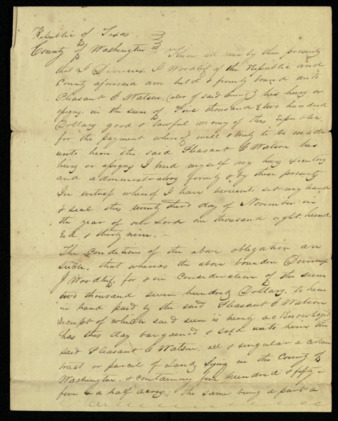 Republic of Texas
County of Washington Know all men by these presents
that I J Wordlif of the Republic and
County aforesaid am held & firmly bound unto
Pleasant C Watson, (also of said County) his heirs or
assigns in the sum of thousand & two hundred
Dollars good & lawful money of this Republic
for the payment whereof well & truly to be made
unto him the said Pleasant C Watson his
heirs or assigns I bind myself my heirs executors
and administrators firmly by these presents
In witness whereof I have hereunto set my hand
& seal this twenty third day of November in
the year of our Lord one thousand eight hund
red & thirty nine.
The Condition of the above obligation are
such, that whereas the above bounden
J Wordlif, for & in consideration of the sum
thousand seven hundred Dollars, to him
in hand paid by the said Pleasant C Watson
receipt of which said sum is hereby acknowledged
has this day bargained & sold unto him the
said Pleasant C Watson all & singular a certain
tract or parcel of Land, lying in the County of
Washington, & containing four hundred & fifty
five & a half acres; the same being a part